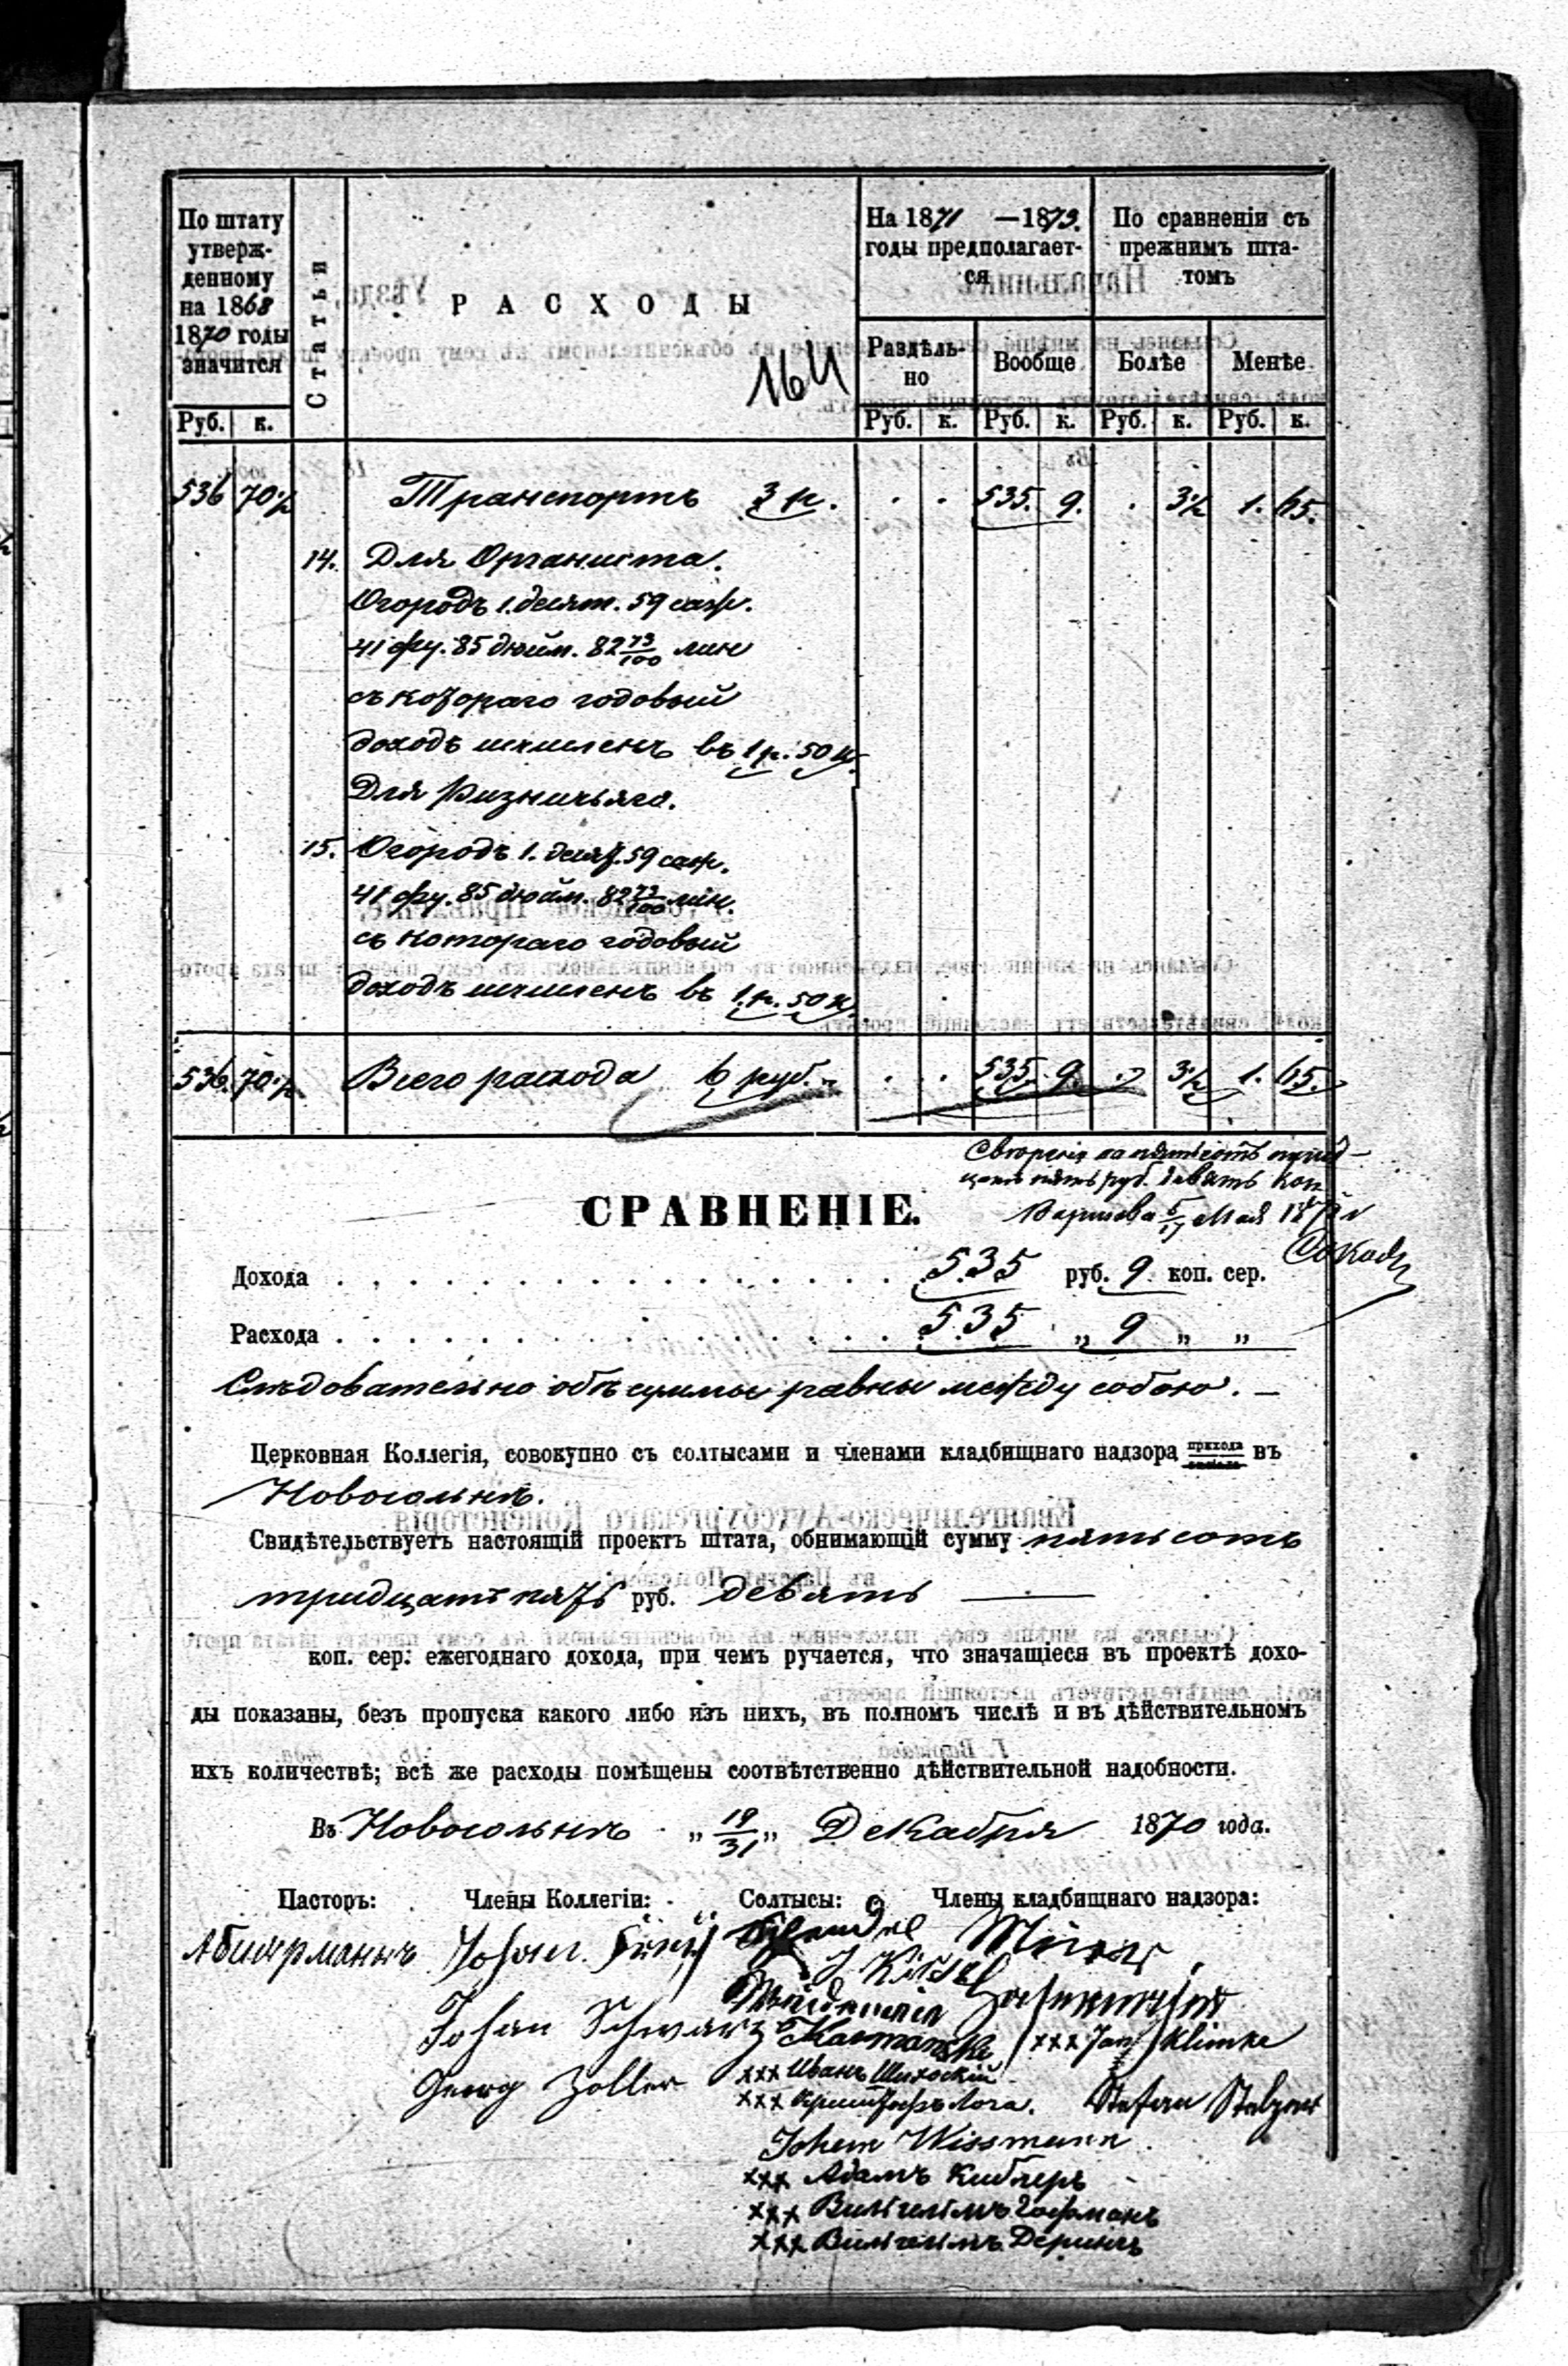 По штату
утверж-
денному
на 1868
1870 годы
значится
Статьи
РАСХОДЫ
164
На 1871 — 1873.
годы предполагает-
ся
По сравненіи съ
прежнимъ шта-
томъ
Раздѣль-
но
Вообще
Болѣе
Менѣе.
Руб. к. Руб. к. Руб. к. Руб. к. Руб. к.
536 70½ Транспортъ 3 р. . . 535. 9. . 3½ 1. 65.
14. Для Органиста.
Огородъ 1. десят. 59 саж.
41 фу. 85 дюйм. 82 73/100 лин
съ котораго годовый
доходъ исчисленъ въ 1 р. 50 к.
Для Ризничьяго.
15. Огородъ 1. десят. 59 саж.
41 фу. 85 дюйм. 82 73/100 лин.
съ котораго годовый
доходъ исчисленъ въ 1. р. 50 к.
536. 70½ Всего расхода 6 руб. . . 535. 9. . 3½ 1. 65.
на пятьсотъ тридцать
пять руб. девять коп
Варшава 5/17 Мая 187
СРАВНЕНІЕ.
Дохода . . . 535 руб. 9 коп. сер.
Расхода . . . 535 „ 9 „ „
Слѣдовательно обѣ суммы равны между собою. —
Церковная Коллегія, совокупно съ солтысами и членами кладбищнаго надзора прихода въ
Новосольнѣ.
Свидѣтельствуетъ настоящій проектъ штата, обнимающій сумму пятьсотъ
тридцать пять руб. девять —
коп. сер. ежегоднаго дохода, при чемъ ручается, что значащіеся въ проектѣ дохо-
ды показаны, безъ пропуска какого либо изъ нихъ, въ полномъ числѣ и въ дѣйствительномъ
ихъ количествѣ; всѣ же расходы помѣщены соотвѣтственно дѣйствительной надобности.
Въ Новосольнѣ „ 19/31 „ Декабря 1870 года.
Пасторъ: Члены Коллегіи: Солтысы: Члены кладбищнаго надзора:
Johan
Johan Schwarz
xxx Jan Klimke
Georg Zoller
xxx Иванъ
xxx
Stefan
Johann Wissmann
xxx Адамъ Киблеръ
xxx Вильгельмъ Гофманъ
xxx Вильгельмъ Дерингъ